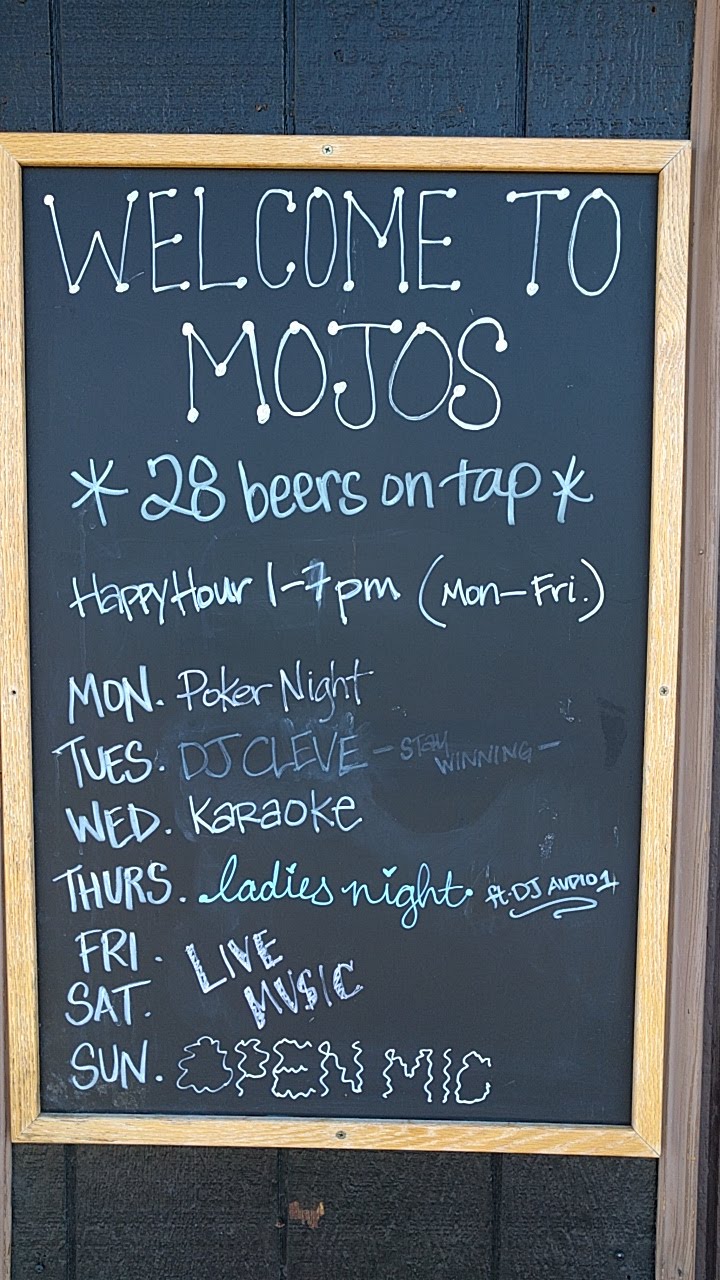 WELCOME TO
MOJOS
* 28 beers on tap *
Happy Hour 1-7pm (Mon-Fri.)
MON. Poker Night
TUES. DJ CLEVE - STAY WINNING -
WED. Karaoke
THURS. ladies night ft. DJ AUDIO1
FRI. LIVE
SAT. MUSIC
SUN. OPEN MIC